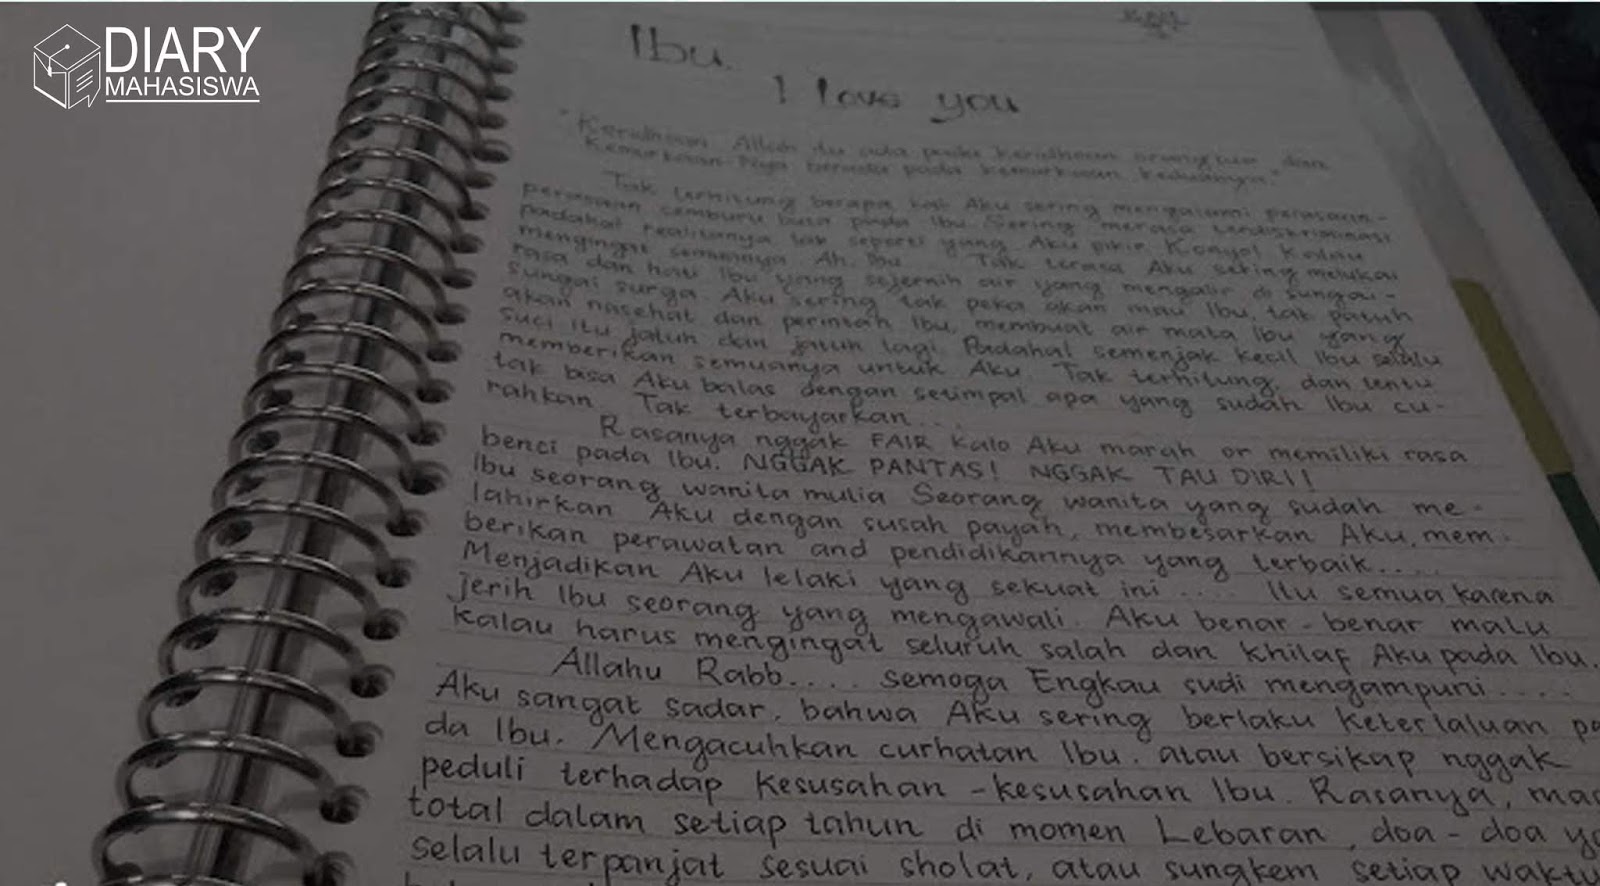 DIARY
MAHASISWA
Ibu.
I love you
"Keridhoan Allah itu ada pada keridhoan orangtua dan
Kemurkaan-Nya berada pada kemurkaan keduanya."
Tak terhitung berapa kali Aku sering mengalami perasaan-
perasaan cemburu buta pada Ibu. Sering merasa terdiskriminasi
padahal realitanya tak seperti yang Aku pikir. Konyol kalau
mengingat semuanya Ah, Ibu Tak terasa Aku sering melukai
rasa dan hati Ibu yang sejernih air yang mengalir di sungai-
sungai surga. Aku sering tak peka akan mau Ibu, tak patuh
akan nasehat dan perintah Ibu, membuat air mata Ibu yang
suci itu jatuh dan jatuh lagi. Padahal semenjak kecil Ibu selalu
memberikan semuanya untuk Aku. Tak terhitung, dan tentu
tak bisa Aku balas dengan setimpal apa yang sudah Ibu cu-
rahkan. Tak terbayarkan....
Rasanya nggak FAIR kalo Aku marah or memiliki rasa
benci pada Ibu. NGGAK PANTAS! NGGAK TAU DIRI!!
Ibu seorang wanita mulia Seorang wanita yang sudah me-
lahirkan Aku dengan susah payah, membesarkan Aku, mem-
berikan perawatan and pendidikannya yang terbaik.....
Menjadikan Aku lelaki yang sekuat ini .... Itu semua karena
jerih Ibu seorang yang mengawali. Aku benar-benar malu
kalau harus mengingat seluruh salah dan khilaf Aku pada Ibu.
Allahu Rabb.... semoga Engkau sudi mengampuni ....
Aku sangat sadar, bahwa Aku sering berlaku keterlaluan pa
da Ibu. Mengacuhkan curhatan Ibu, atau bersikap nggak
peduli terhadap kesusahan-kesusahan Ibu. Rasanya,
total dalam setiap tahun di momen Lebaran, doa-doa
selalu terpanjat sesuai sholat, atau sungkem setiap waktu